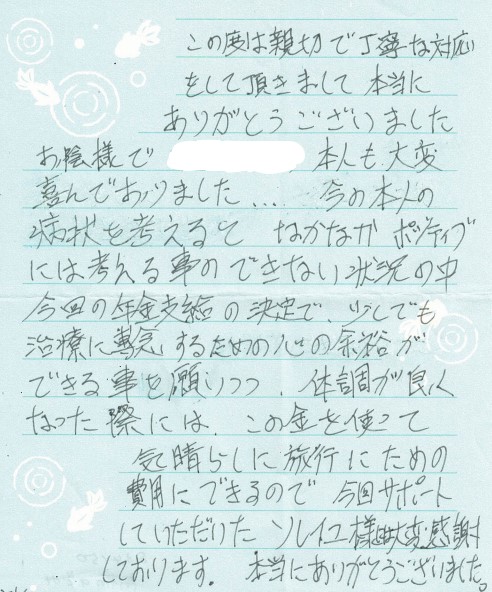 この度は親切で丁寧な対応
をして頂きまして 本当に
ありがとうございました
お陰様で 本人も大変
喜んでおりました.... 今の本人の
病状を考えると なかなか ポジティブ
には考える事のできない状況の中
今回の年金支給の決定で、少しでも
治療に専念するための心の余裕が
できる事を願いつつ、体調が良く
なった際には、この金を使って
気晴らしに旅行にための
費用にできるので 今回サポート
していただけた ソレイユ様 大変感謝
しております。本当にありがとうございました。